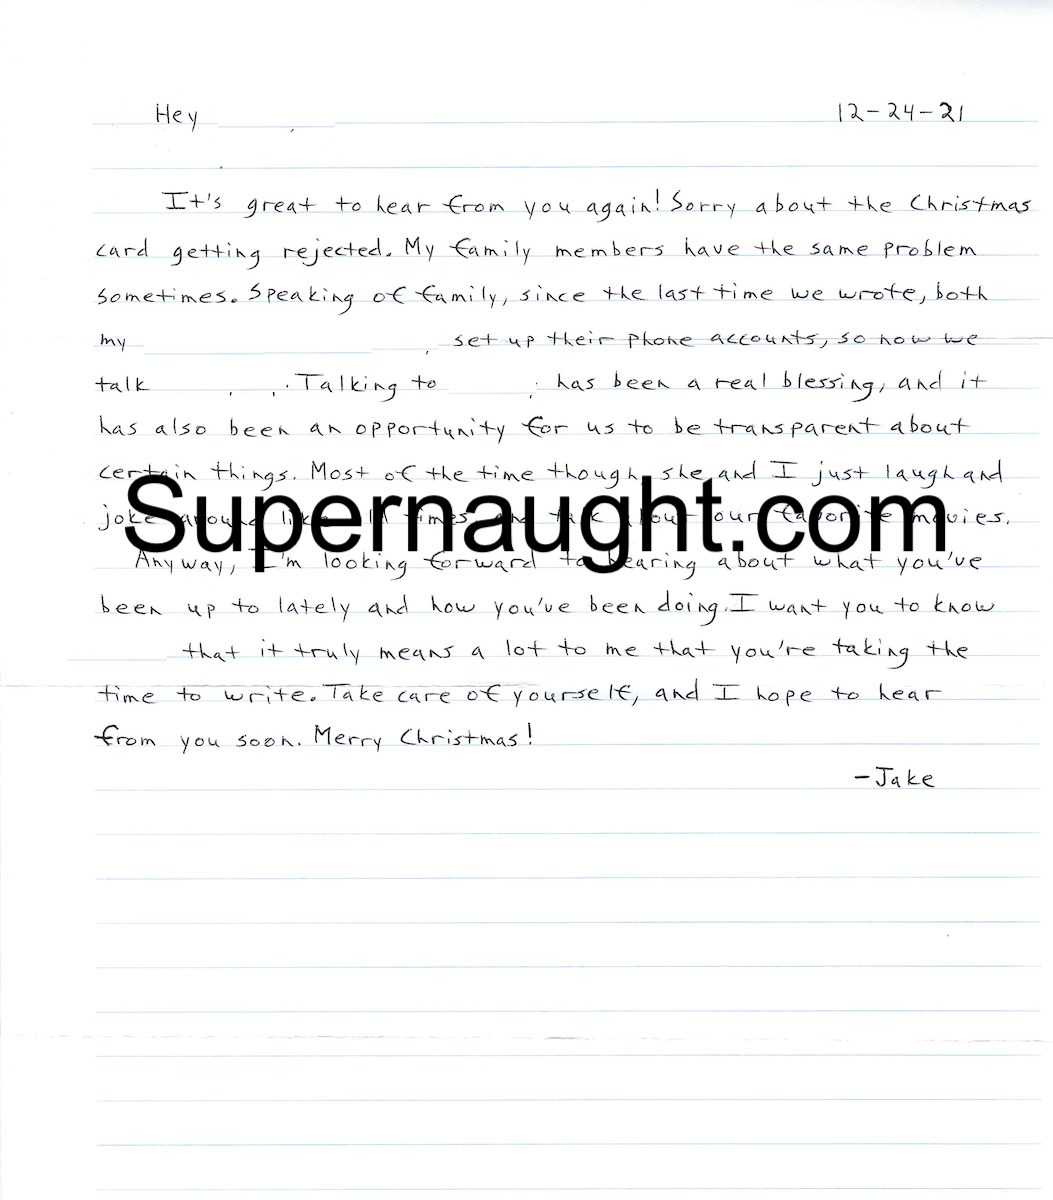 Hey 12-24-21
It's great to hear from you again! Sorry about the Christmas
card getting rejected. My family members have the same problem
sometimes. Speaking of family, since the last time we wrote, both
my , set up their phone accounts, so now we
talk . Talking to has been a real blessing, and it
has also been an opportunity for us to be transparent about
certain things. Most of the time though, she and I just laugh and
joke around like old times and talk about our favorite movies.
Supernaught.com
Anyway, I'm looking forward to hearing about what you've
been up to lately and how you've been doing. I want you to know
that it truly means a lot to me that you're taking the
time to write. Take care of yourself, and I hope to hear
from you soon. Merry Christmas!
-Jake